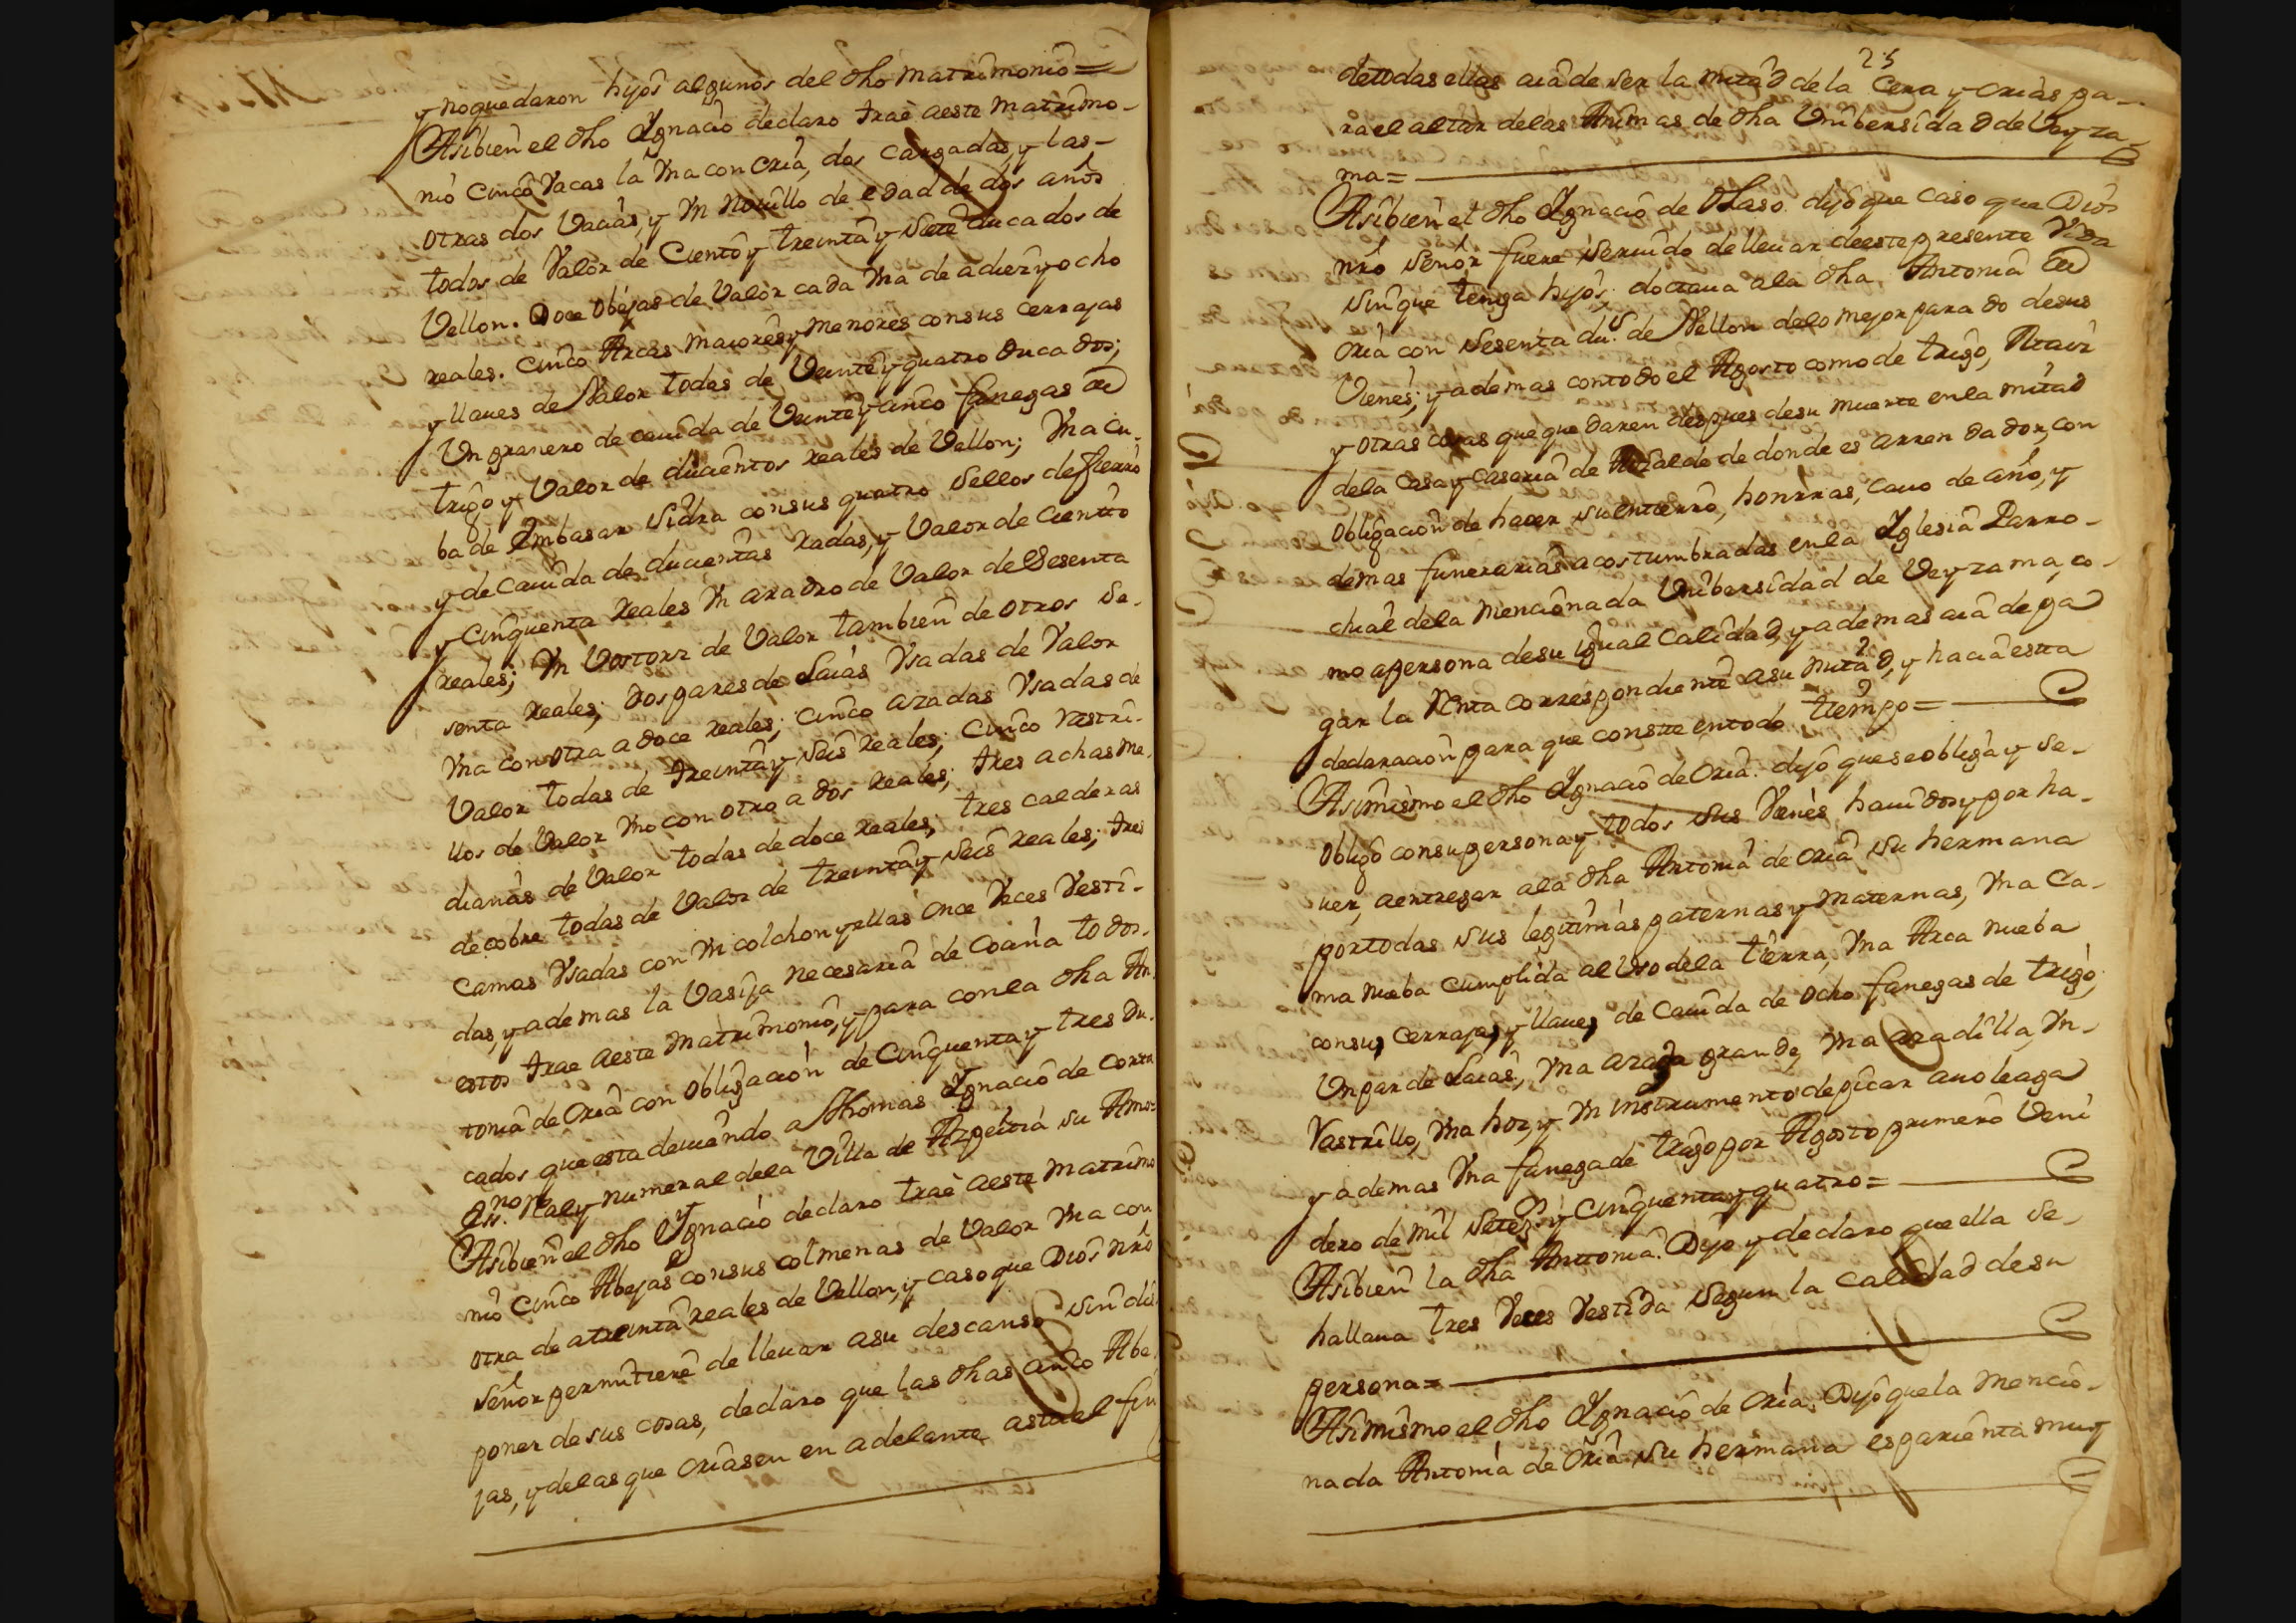 y no quedaron hijos algunos del dho Matrimonio=
Asibien el dho Ygnacio declaro trae a este Matrimo-
nio cinco Vacas la Vna con cria, dos cargadas, y las-
otras dos Vacias, y Vn Nouillo de edad de dos años
todos de Valor de Ciento y treinta y siete ducados de
Vellon. Doce obejas de Valor cada Vna de a diez y ocho
reales. cinco Arcas maiores y menores con sus cerrajas
y llaues de Valor todas de Veinte y quatro ducados;
Vn granero de cauida de Veinte y cinco fanegas de
trigo y Valor de ducientos reales de Vellon; Vna cu-
ba de Embasar sidra con sus quatro sellos de fierro
y de cauida de ducientas Kadas, y Valor de ciento
y cinquenta reales Vn aradro de Valor de sesenta
reales; Vn Vostorz de Valor tambien de otros se-
senta reales; dos pares de Laias Vsadas de Valor
Vna con otra a doce reales; cinco azadas Vsadas de
Valor todas de treinta y seis reales; cinco rastri-
llos de Valor Vno con otro a dos reales; tres achas me-
dianas de Valor todas de doce reales; tres calderas
de cobre todas de Valor de treinta y seis reales; tres
camas Vsadas con Vn colchon y ellas once Veces Vesti-
das, y ademas la Vasija necesaria de Cocina todos
estos trae a este Matrimonio, y para con la dha An
tonia de Oria con obligacion de Cinquenta y tres Du-
cados que esta deuiendo a Thomas Ygnacio de Corta
Essno. Real y numeral de la Villa de Azpeitia su Amo=
Asibien el dho Ygnacio declaro trae a este Matrimo
nio cinco Abejas con sus colmenas de Valor Vna con
otra de a treinta reales de Vellon, y caso que Dios nro
Señor permitiere de lleuar a su descanso sin dis
poner de sus cosas, declaro que las dhas cinco Abe-
jas, y de las que criasen en adelante asta el fin
25
de todas ellas aia de ser la mitad de la Cera y crias pa-
ra el altar de las Animas de dha Vnibersidad de Veyza-
ma=
Asibien el dho Ygnacio de Olaso. dijo que caso que Dios
nro Señor fuere seruido de lleuar de este presente Vida
sin que tenga hijos, doctaua a la dha Antonia de
Oria con sesenta dus. de Vellon de lo mejor parado de sus
Vienes; y ademas con todo el Agosto como de trigo,
y otras cosas que quedaren despues de su muerte en la mitad
de la Casa y Caseria de de donde es arrendador, con
obligacion de hacer su entierro, honrras, cauo de año, y
demas funerarias acostumbradas en la Yglesia Parro-
chial de la Mencionada Vnibersidad de Veyzama, co-
mo a persona de su igual Calidad, y ademas aia de pa
gar la Renta correspondiente a su mitad, y hacia esta
declaracion para que conste en todo tiempo=
Asimismo el dho Ygnacio de Oria. dijo que se obliga y se-
obligo con su persona y todos sus Vienes hauidos y por ha-
uer, a entregar a la dha Antonia de Oria su hermana
por todas sus legitimas paternas y Maternas, Vna Ca-
ma nueba cumplida al Vso de la tierra, Vna Arca nueba
con sus cerrajas y llaues de Cauida de ocho fanegas de trigo;
Vn par de Laias, Vna azada grande, Vna azadilla, Vn-
Rastrillo, Vna hoz, y Vn instrumento de picar
y ademas Vna fanega de trigo por Agosto primero Veni
dero de mil Setez.s y cinquenta y quatro=
Asibien la dha Antonia. Dijo y declaro que ella se-
hallaua tres Veces Vestida segun la calidad de su
persona=
Asimismo el dho Ygnacio de Oria. Dijo que la Mencio-
nada Antonia de Oria su hermana es parienta muy